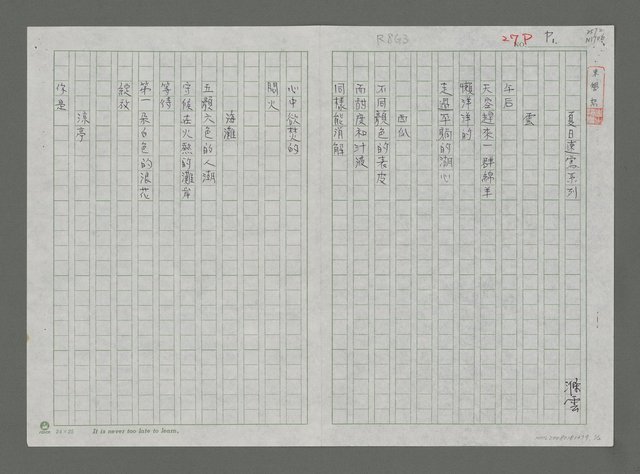 R863
27P
P1
夏日速寫系列
滌雲
雲
午后
天空趕來一群綿羊
懶洋洋的
走過平躺的湖心
西瓜
不同顏色的表皮
而甜度和汁液
同樣能消解
心中欲焚的
悶火
海灘
五顏六色的人潮
守候在火熱的灘岸
等待
第一朵白色的浪花
綻放
涼亭
你是
24×25
It is never too late to learn.